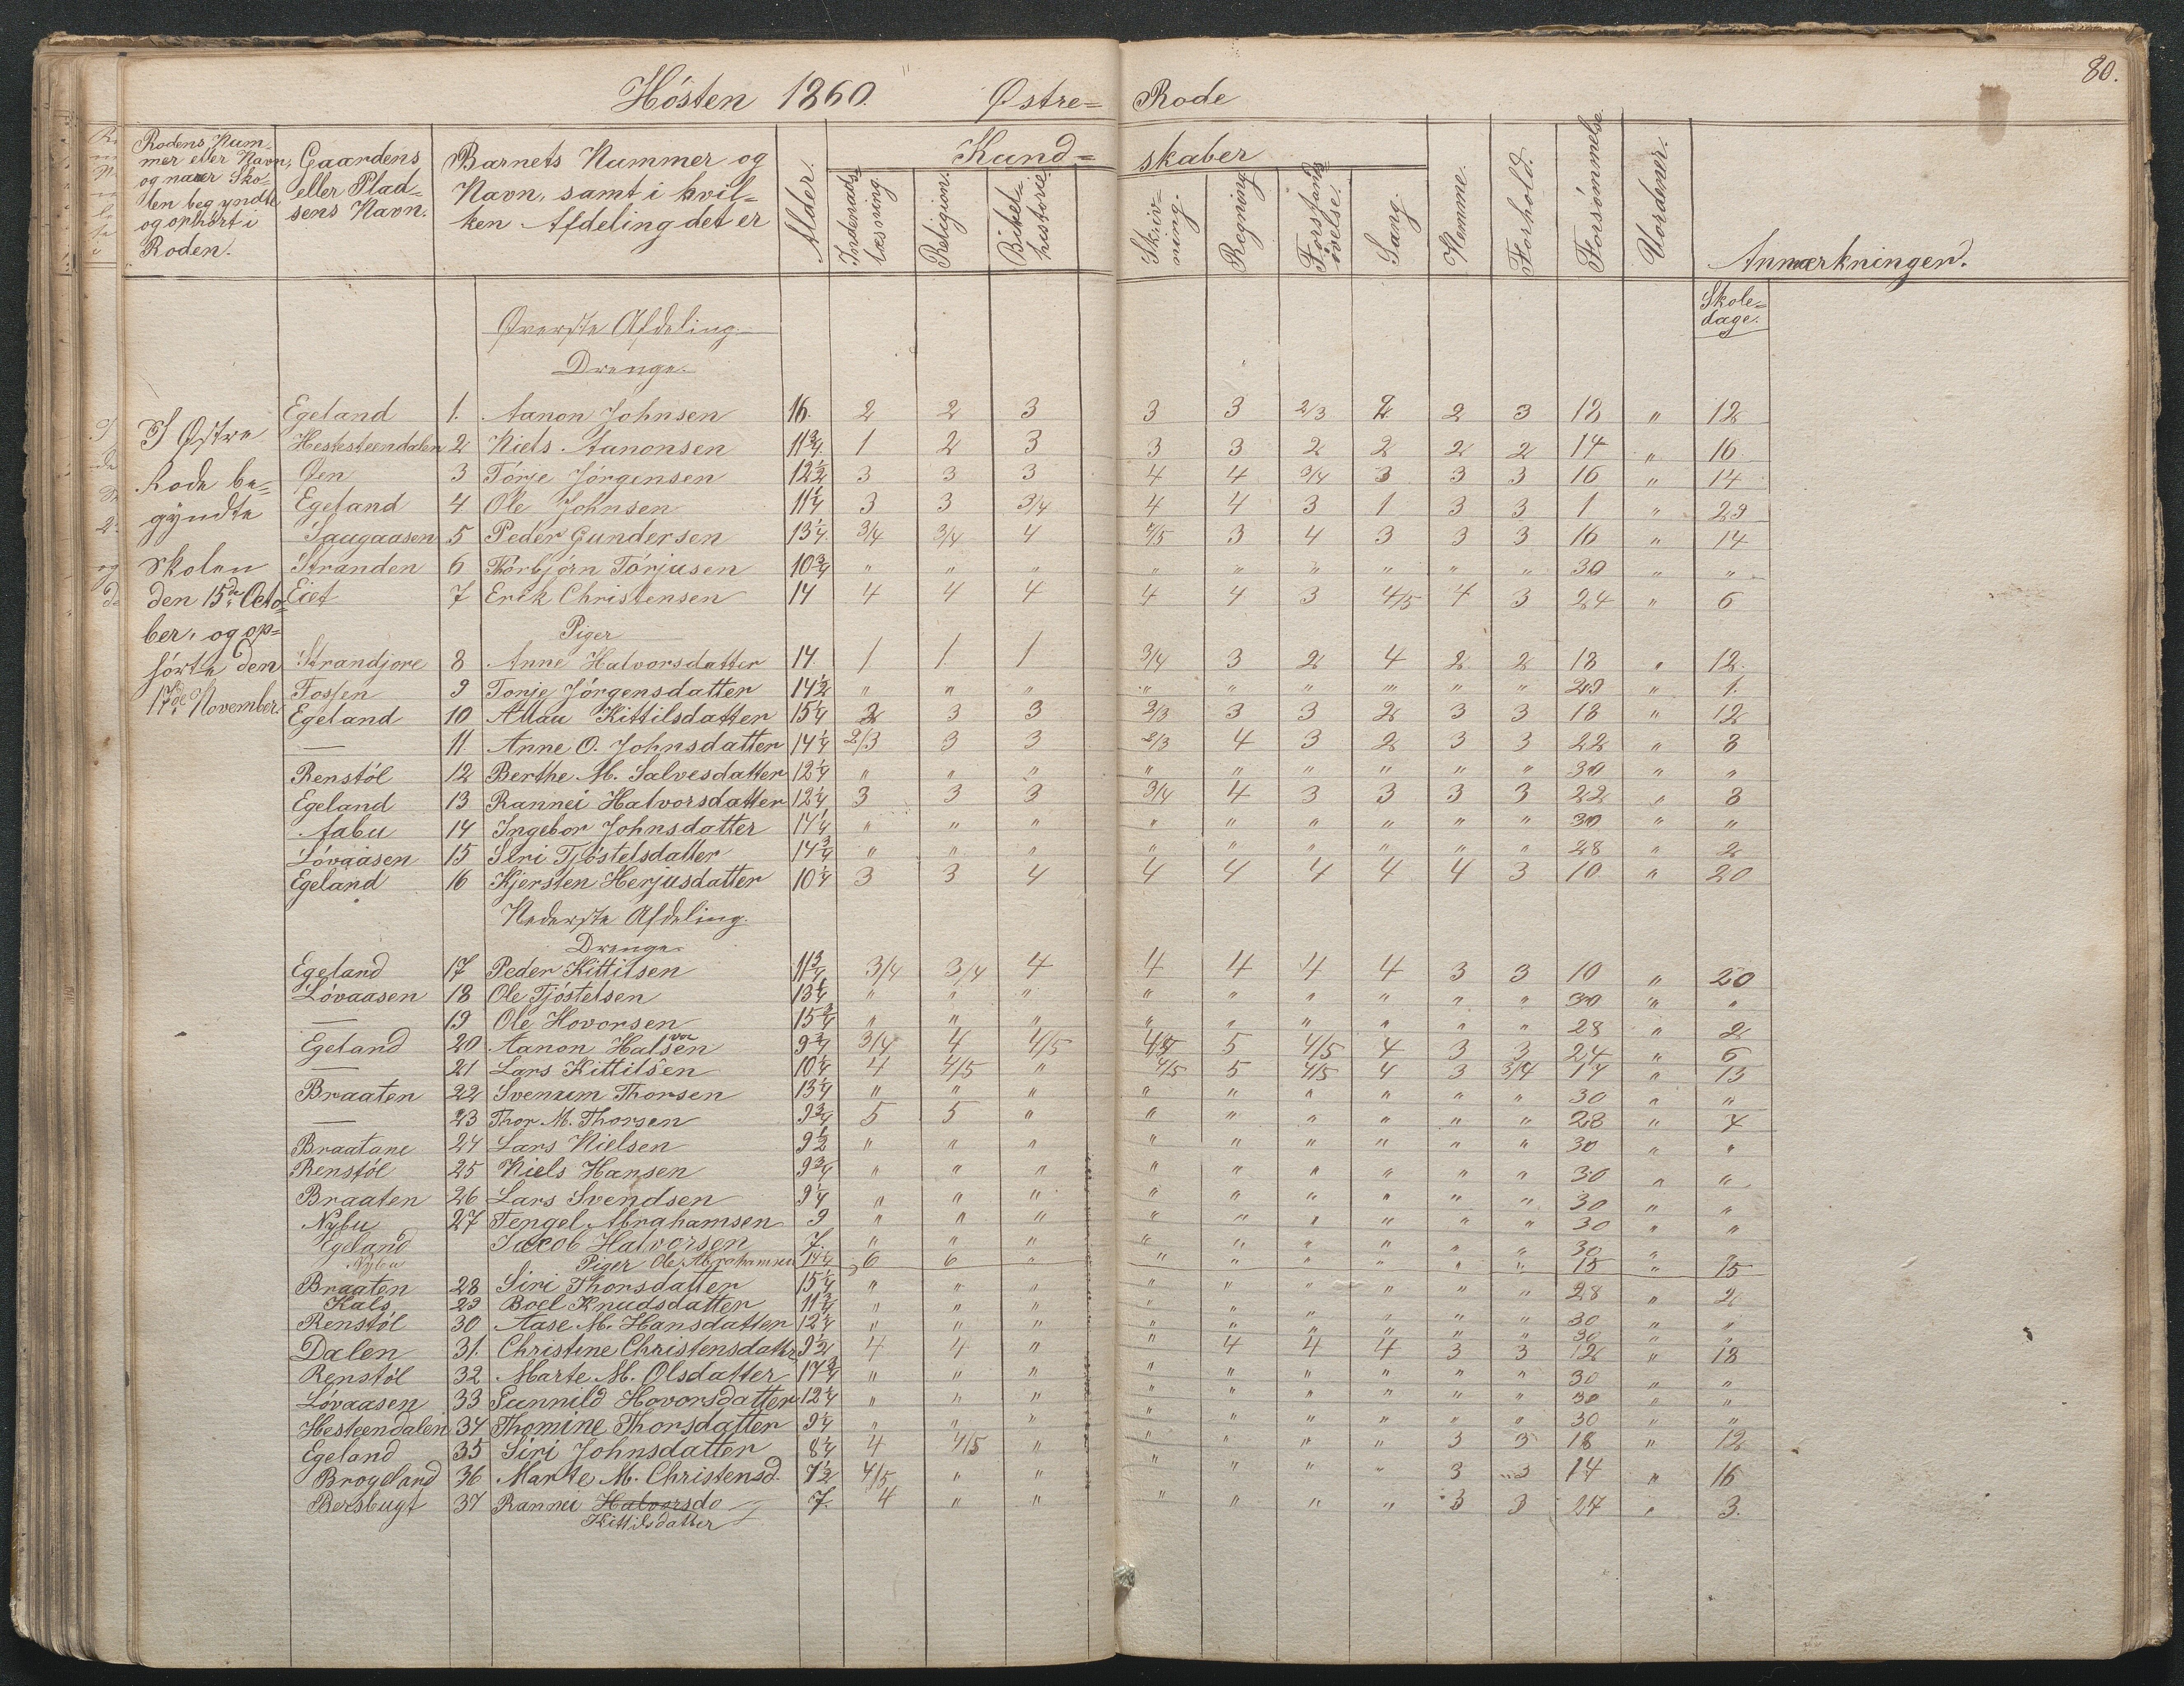 80.
Hósten 1860. Østre= Rode
Rodens Nummer eller Navn, og naar Skolen begyndte og ophört i Roden.
Gaardens eller Pladsens Navn.
Barnets Nummer og Navn, samt i hvilken Afdeling det er
Alder.
Kund= skaber
Indenadslæsning.
Religion.
Bibelhistorie
Skrivning.
Regning
Forstandsövelse.
Sang.
Nemme.
Forhold.
Forsömmelse
Uordener.
Anmærkninger.
Skoledage.
Øverste Afdeling.
Drenge.
I Østre
Rode be=
gyndte
Skolen
den 15de Octo=
ber, og op=
hórte den
17de November.
Egeland 1. Aanon Johnsen 16. 2 2 3 3 3 2/3 2 2 3 18 " 12
Hestesteendalen 2 Niels Aanonsen 11 3/4 1 2 3 3 3 2 2 2 2 14 " 16
Øen 3 Tórje Jórgensen 12 1/2 3 3 3 4 4 3/4 3 3 3 16 " 14
Egeland 4 Ole Johnsen 11 1/4 3 3 3/4 4 4 3 1 3 3 1 " 29
Saugaasen 5 Peder Gundersen 13 1/4 3/4 3/4 4 4/5 3 4 3 3 3 16 " 14
Stranden 6 Thórbjórn Tórjusen 10 3/4 " " " " " " " " " 30 " "
Eiet 7 Erik Christensen 14 4 4 4 4 4 3 4/5 4 3 24 " 6
Piger
Strandjore 8 Anne Halvorsdatter 14. 1 1 1 3/4 3 2 4 2 2 18 " 12
Fossen 9 Torje Jórgensdatter 14 1/2 " " " " " " " " " 29 " 1.
Egeland 10 Allau Kittilsdatter 15 1/4 2 3 3 2/3 3 3 2 3 3 18 " 12
— 11. Anne O. Johnsdatter 14 1/4 2/3 3 3 2/3 4 3 2 3 3 22 " 8
Renstól 12 Berthe M. Salvesdatter 12 1/4 " " " " " " " " " 30 " "
Egeland 13 Rannei Halvorsdatter 12 1/4 3 3 3 3/4 4 3 3 3 3 22 " 8
Aabu 14 Ingebor Johnsdatter 14 1/4 " " " " " " " " " 30 " "
Lóvaasen 15 Siri Tjóstelsdatter 14 3/4 " " " " " " " " " 28 " 2
Egeland 16 Kjersten Herjusdatter 10 1/4 3 3 4 4 4 4 4 4 3 10 " 20
Nederste Afdeling.
Drenge.
Egeland 17 Peder Kittilsen 11 3/4 3/4 3/4 4 4 4 4 4 3 3 10 " 20
Lóvaasen 18 Ole Tjóstelsen 13 1/4 " " " " " " " " " 30 " "
— 19 Ole Hovorsen 15 3/4 " " " " " " " " " 28 " 2
Egeland 20 Aanon Halvorsen 9 3/4 3/4 4 4/5 4/5 5 4/5 4 3 3 24 " 6
— 21 Lars Kittilsen 10 1/4 4 4/5 " 4/5 5 4/5 4 3 3/4 17 " 13
Braaten 22 Svenum Thorsen 13 1/4 " " " " " " " " " 30 " "
— 23 Thor M. Thorsen 9 3/4 5 5 " " " " " " " 28 "
Braatane 24 Lars Nielsen 9 1/2 " " " " " " " " " 30 " "
Renstól 25 Niels Hansen 9 3/4 " " " " " " " " " 30 " "
Braaten 26 Lars Svendsen 9 1/4 " " " " " " " " " 30 " "
Nybu 27 Tengel Abrahamsen 9 " " " " " " " " " 30 " "
Egeland Jacob Halvorsen 7. " " " " " " " " " 30 "
Nybu Piger Ole Abrahamsen 14 1/4 6 6 " " " " " " " 15 " 15
Braaten 28 Siri Thorsdatter 15 1/4 " " " " " " " " " 28 " 2
Hals 29 Boel Knudsdatter 11 3/4 " " " " " " " " " 30 " "
Renstól 30 Aase M. Hansdatter 12 1/4 " " " " " " " " " 30 " "
Dalen 31. Christine Christensdatter 9 1/2 4 4 " " 4 4 4 3 3 12 " 18
Renstól 32 Marte M. Olsdatter 14 3/4 " " " " " " " " " 30 " "
Lóvaasen 33 Gunnild Hovorsdatter 12 1/4 " " " " " " " " " 30 " "
Hesteendalen 34 Thomine Thorsdatter 9 1/4 " " " " " " " " " 30 " "
Egeland 35 Siri Johnsdatter 8 1/4 4 4/5 " " " " " 3 3 18 " 12
Brogeland 36 Marte M. Christensd. 7 1/2 4/5 " " " " " " 3 3 14 " 16
Bersbugt 37 Rannei Halvorsdo 7. 4 " " " " " " 3 3 27 " 3.
Kittilsdatter